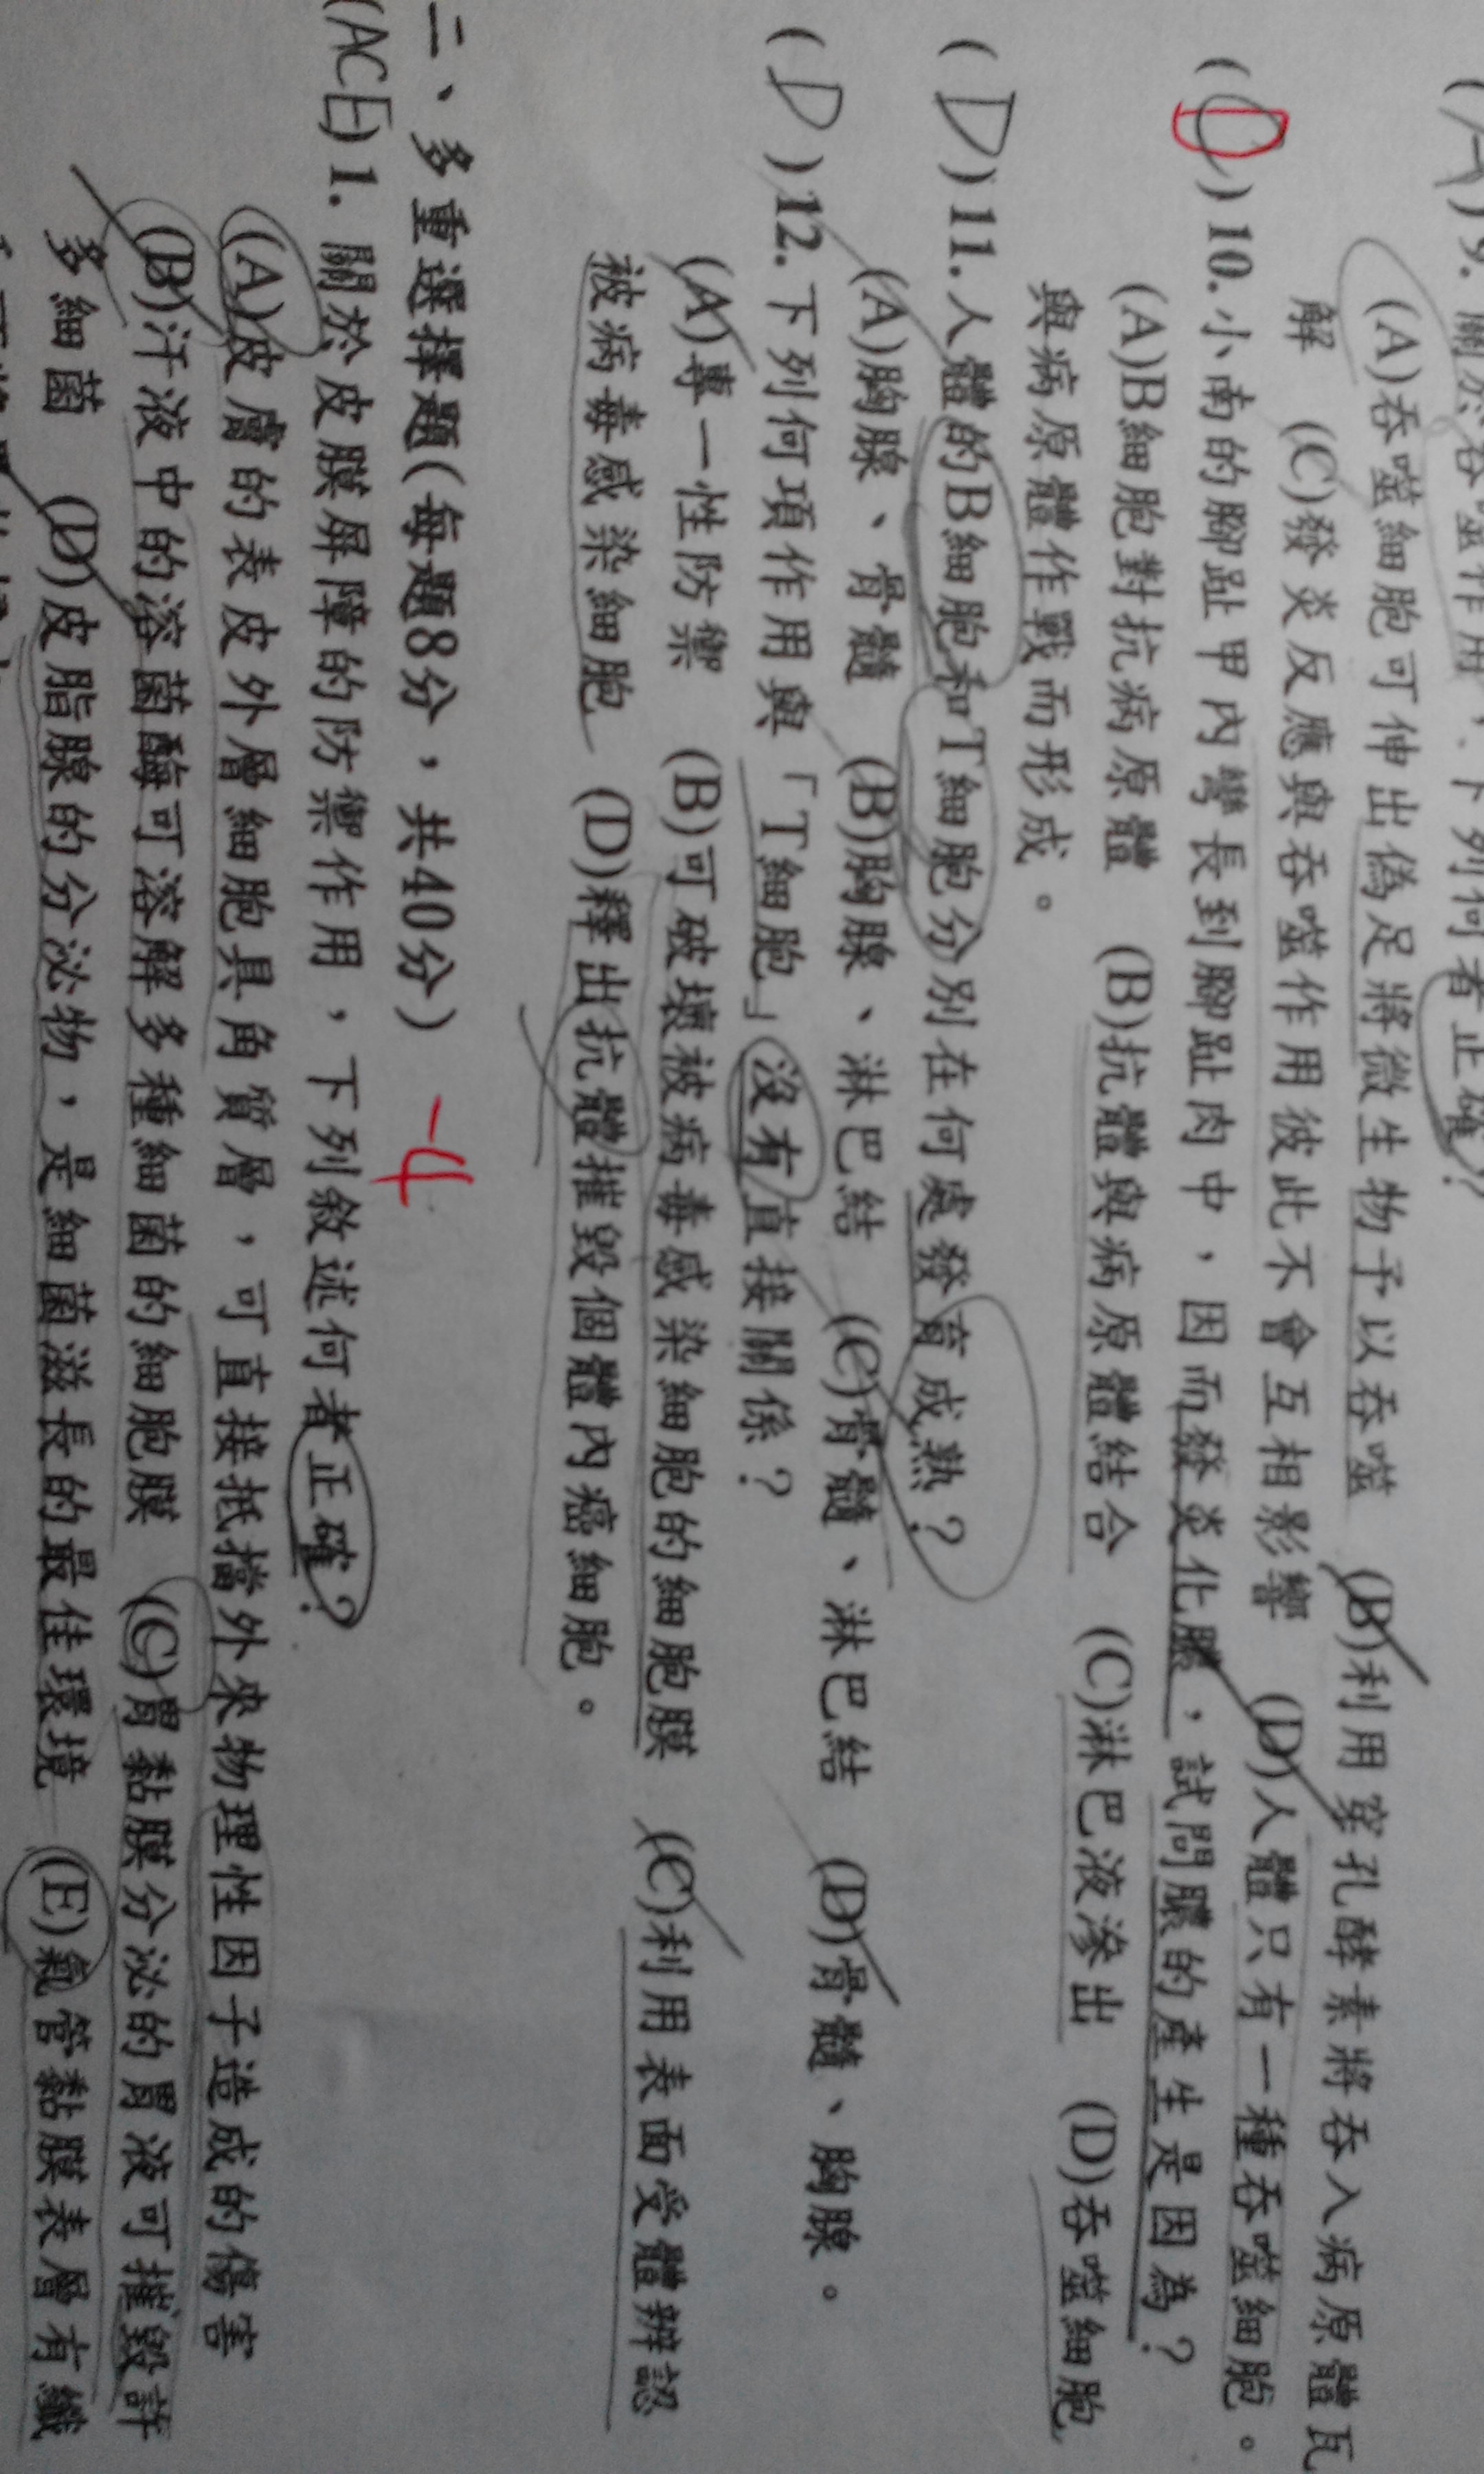 9. 關於吞噬作用，下列何者正確？
(A)吞噬細胞可伸出偽足將微生物予以吞噬 (B)利用穿孔酵素將吞入病原體瓦
解 (C)發炎反應與吞噬作用彼此不會互相影響 (D)人體只有一種吞噬細胞。
( D )10. 小南的腳趾甲內彎長到腳趾肉中，因而發炎化膿，試問膿的產生是因為？
(A)B細胞對抗病原體 (B)抗體與病原體結合 (C)淋巴液滲出 (D)吞噬細胞
與病原體作戰而形成。
( D )11. 人體的B細胞和T細胞分別在何處發育成熟？
(A)胸腺、骨髓 (B)胸腺、淋巴結 (C)骨髓、淋巴結 (D)骨髓、胸腺。
( D )12. 下列何項作用與「T細胞」沒有直接關係？
(A)專一性防禦 (B)可破壞被病毒感染細胞的細胞膜 (C)利用表面受體辨認
被病毒感染細胞 (D)釋出抗體摧毀個體內癌細胞。
二、多重選擇題(每題8分，共40分) -4
(ACE)1. 關於皮膜屏障的防禦作用，下列敘述何者正確？
(A)皮膚的表皮外層細胞具角質層，可直接抵擋外來物理性因子造成的傷害
(B)汗液中的溶菌酶可溶解多種細菌的細胞膜 (C)胃黏膜分泌的胃液可摧毀許
多細菌 (D)皮脂腺的分泌物，是細菌滋長的最佳環境 (E)氣管黏膜表層有纖